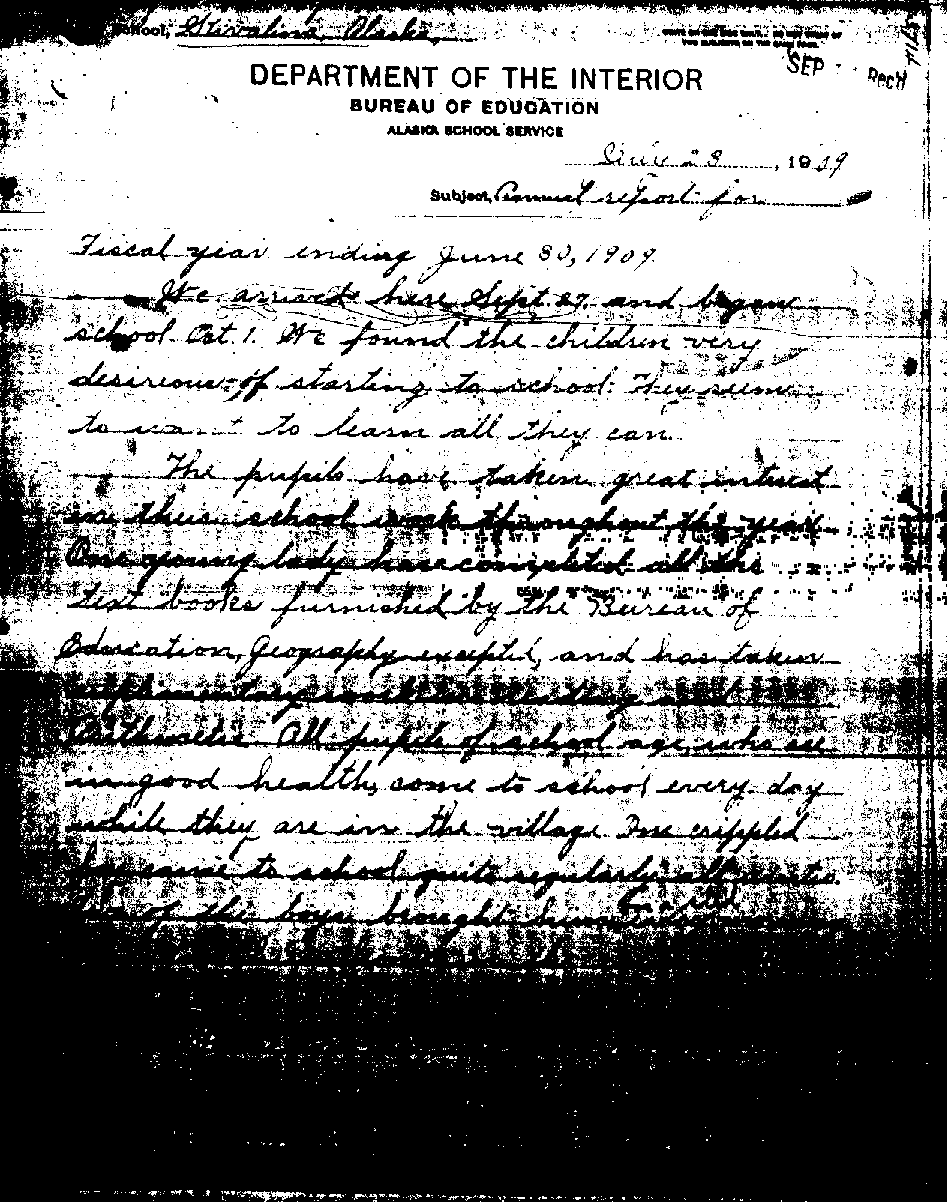 School, Kivalina, Alaska,
SEP Rec'd
DEPARTMENT OF THE INTERIOR
BUREAU OF EDUCATION
ALASKA SCHOOL SERVICE
28, 1909
Subject, Annual report for
Fiscal year ending June 30, 1909.
We arrived here Sept. 27. and began
school Oct. 1. We found the children very
desireous of starting to school. They seem
to want to learn all they can.
The pupils have taken great interest
in their school work throughout the year.
One young lady has completed all the
text books furnished by the Bureau of
Education, Geography excepted, and has taken
supplementary work in reading and
Arithmetic. All pupils of school age who are
in good health, come to school every day
while they are in the village. One crippled
boy came to school quite regularly all winter.
of the boys brought him